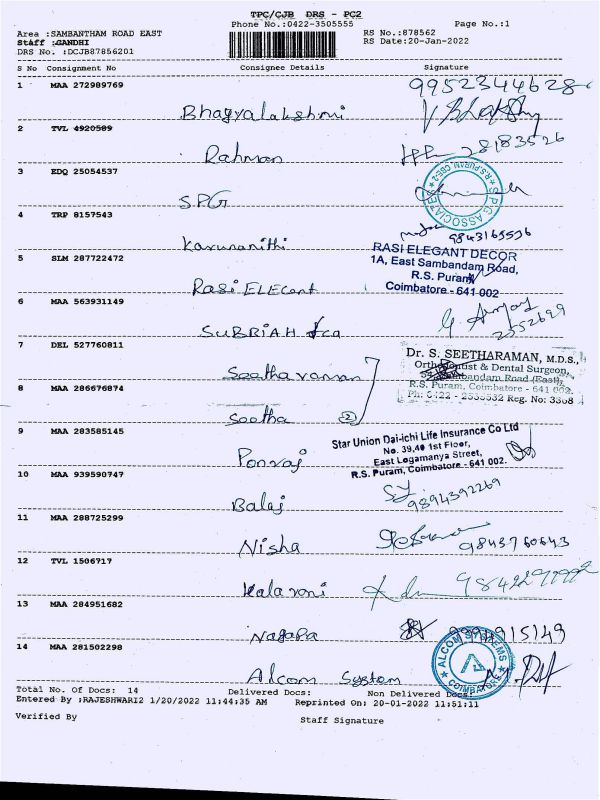 TPC/CJB DRS - PC2
Phone No.:0422-3505555 Page No.:1
Area :SAMBANTHAM ROAD EAST RS No.:878562
Staff :GANDHI RS Date:20-Jan-2022
DRS No. :DCJB87856201
S No Consignment No Consignee Details Signature
1 MAA 272989769 9952344628
Bhagyalakshmi
2 TVL 4920589
Rahman
3 EDQ 25054537
SPG
S.P.G ASSOCIATES
4 TRP 8157543
Karunanithi 9843165536
5 SLM 287722472 RASI ELEGANT DECOR
1A, East Sambandam Road,
R.S. Puram
Coimbatore - 641 002
Rasi ELEcant
6 MAA 563931149
2552699
SUBRIAH
7 DEL 527760811 Dr. S. SEETHARAMAN, M.D.S.,
Orthodontist & Dental Surgeon,
Sambandam Road (East),
R.S. Puram, Coimbatore - 641 002.
Ph: 0422 - 2535532 Reg. No: 3308
Seetharaman
8 MAA 286676874
Seetha 2
9 MAA 283585145 Star Union Dai-ichi Life Insurance Co Ltd
No. 39,40 1st Floor,
East Logamanya Street,
R.S. Puram, Coimbatore - 641 002.
Ponraj
10 MAA 939590747
9894392269
Balaj
11 MAA 288725299
Nisha 9843760643
12 TVL 1506717
Kalavani
13 MAA 284951682
Nagapa
14 MAA 281502298
ALCOM SYSTEMS
COIMBATORE
Alcom System
Total No. Of Docs: 14 Delivered Docs: Non Delivered Docs:
Entered By :RAJESHWARI2 1/20/2022 11:44:35 AM Reprinted On: 20-01-2022 11:51:11
Verified By Staff Signature